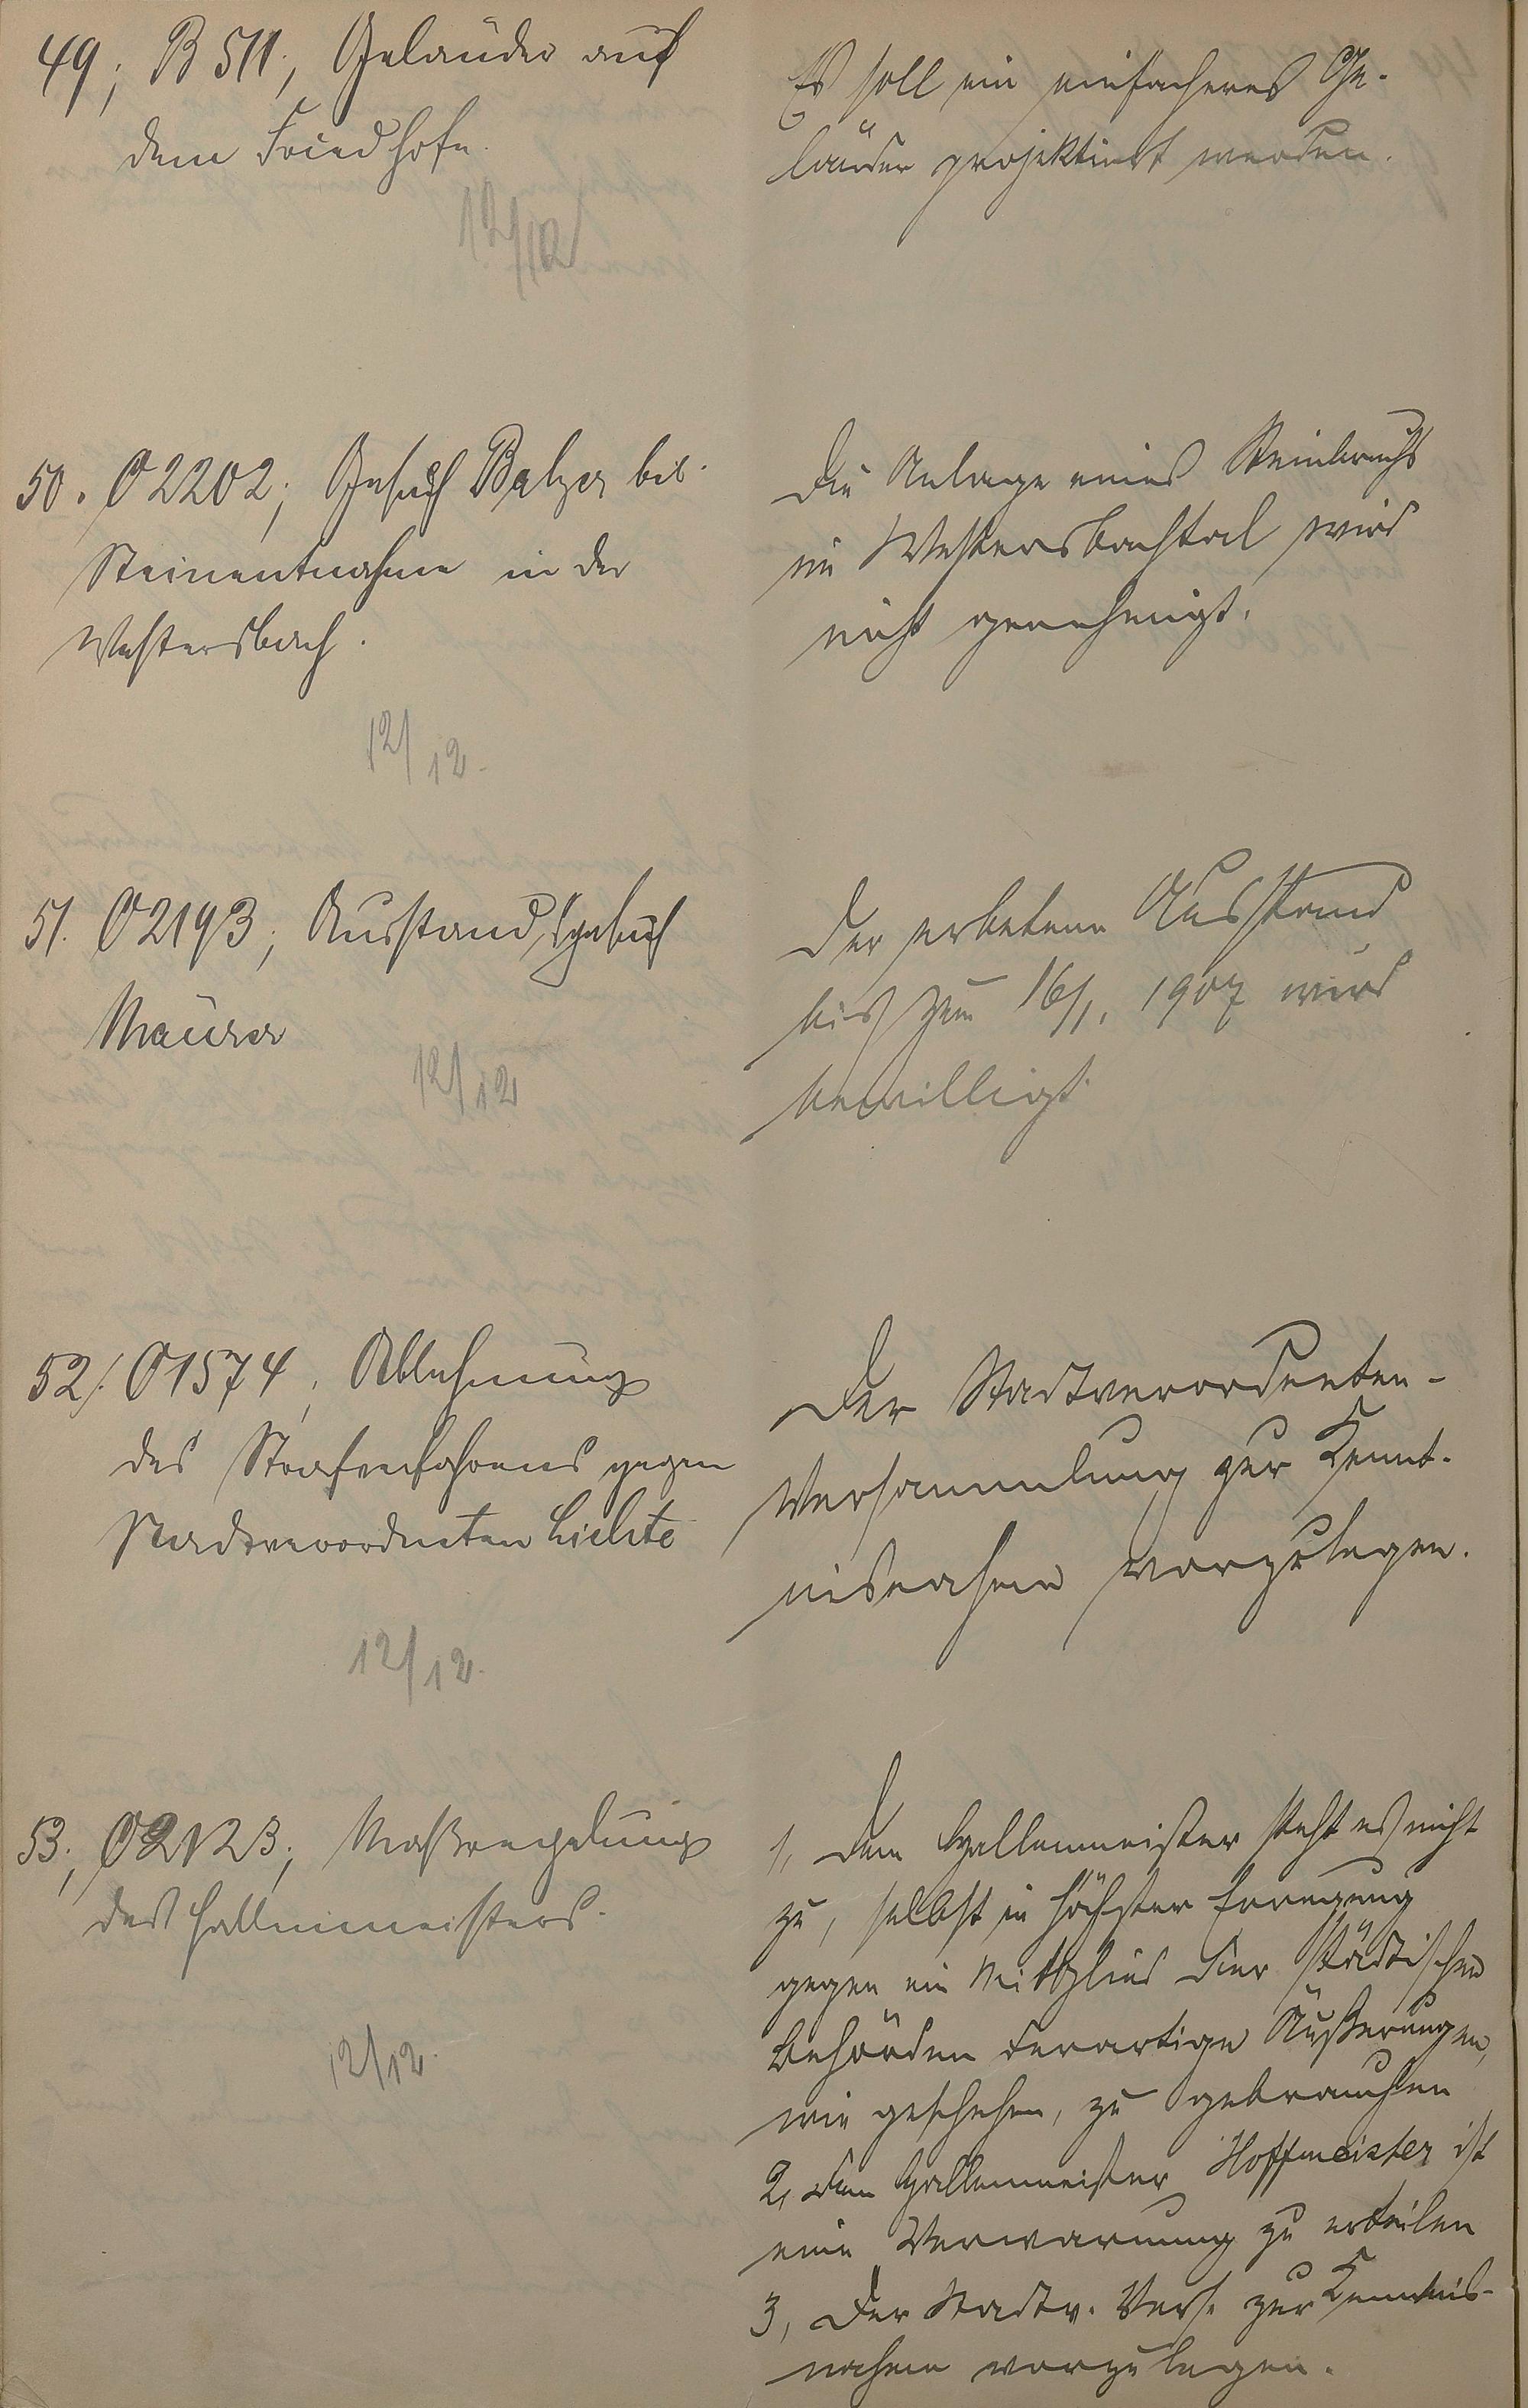 49; B 511; Geländer auf
dem Friedhofe.
12/12
Es soll ein einfacheres Ge-
länder projektiert werden.
50. O 2202; Gesuch Balzer bet.
Steinentnahme in der
Westersbach.
12/12.
Die Anlage eines Steinbruchs
im Westersbachtal wird
nicht genehmigt.
51. O 2193; Ausstandsgesuch
Maurer
12/12
Der erbetene Ausstand
bis zum 16/1. 1907 wird
bewilligt.
52/. O 1574, Ablehnung
des Strafverfahrens gegen
Stadtverordneten Lichte
12/12.
Der Stadtverordneten-
Versammlung zur Kennt-
nisnahme vorzulegen.
53; O 2123; Maßregelung
des Hallenmeisters.
12/12.
1, Dem Hallenmeister steht es nicht
zu, selbst in höchster Erregung
gegen ein Mitglied der städtischen
Behörden derartige Äußerungen,
wie geschehen, zu gebrauchen
2, Dem Hallenmeister Hoffmeister ist
eine Verwarnung zu erteilen
3, Der Stadtv. Vers. zur Kenntnis-
nahme vorzulegen.